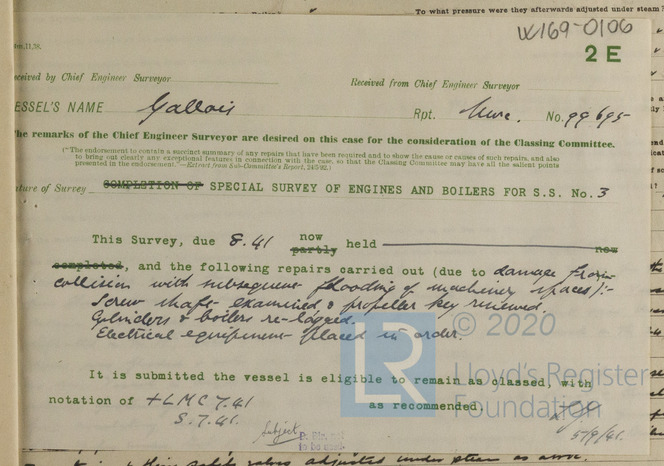 To what pressure were they afterwards adjusted under steam?
W169-0106
2 E
11.38.
ceived by Chief Engineer Surveyor
Received from Chief Engineer Surveyor
ESSEL'S NAME Gallois
Rpt. No. 99695
he remarks of the Chief Engineer Surveyor are desired on this case for the consideration of the Classing Committee.
("The endorsement to contain a succinct summary of any repairs that have been required and to show the cause or causes of such repairs, and also
to bring out clearly any exceptional features in connection with the case, so that the Classing Committee may have all the salient points
presented in the endorsement."—Extract from Sub-Committee's Report, 24/3/92.)
ature of Survey COMPLETION OF SPECIAL SURVEY OF ENGINES AND BOILERS FOR S.S. No. 3
This Survey, due 8.41 now partly held now
completed, and the following repairs carried out (due to damage from
collision with subsequent flooding of machinery spaces):-
Screw shaft examined & propeller key renewed.
Cylinders & boilers re-lagged.
Electrical equipment placed in order.
It is submitted the vessel is eligible to remain as classed, with
notation of +LMC 7.41 as recommended.
S.7.41
Subject
5/9/41.
LR
© 2020
Lloyd's Register
Foundation
adjusted under steam as above.